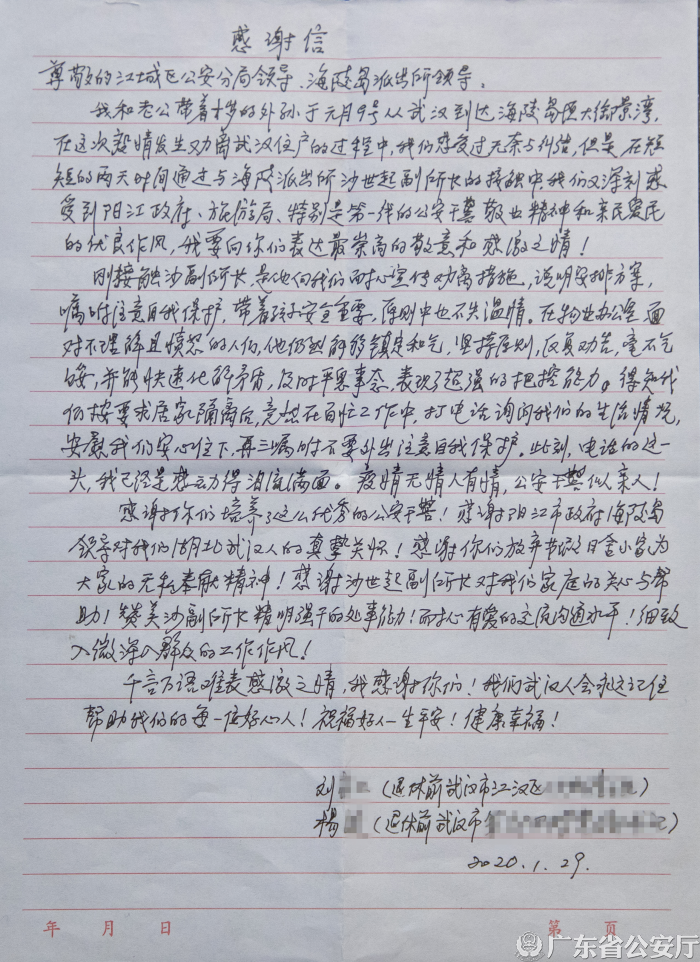 感谢信
尊敬的江城区公安分局领导、海陵岛派出所领导、
我和老公带着十岁的外孙于元月9号从武汉到达海陵岛恒大御景湾,
在这次疫情发生劝离武汉住户的过程中,我们感受过无奈与纠结,但是在短
短的两天时间通过与海陵派出所沙世起副所长的接触中,我们又深刻感
受到阳江政府、旅游局、特别是第一线的公安干警敬业精神和亲民爱民
的优良作风,我要向你们表达最崇高的敬意和感激之情!
刚接触沙副所长,是他向我们耐心宣传劝离措施,说明安排方案,
嘱咐注意自我保护,带着孩子安全重要,原则中也不失温情。在物业办公室面
对不理解且愤怒的人们,他仍然能够镇定和气,坚持原则,反复劝告,毫不气
馁,并能快速化解矛盾,及时平息事态,表现了超强的把控能力。得知我
们按要求居家隔离后,竟然在百忙工作中,打电话询问我们的生活情况,
安慰我们安心住下,再三嘱咐不要外出注意自我保护。此刻,电话的这一
头,我已经是感动得泪流满面。疫情无情人有情,公安干警似亲人!
感谢你们培养了这么优秀的公安干警!感谢阳江市政府海陵岛
领导对我们湖北武汉人的真挚关怀!感谢你们放弃节假日舍小家为
大家的无私奉献精神!感谢沙世起副所长对我们家庭的关心与帮
助!赞美沙副所长精明强干的处事能力!耐心有爱的交流沟通水平!细致
入微深入群众的工作作风!
千言万语难表感激之情,我感谢你们!我们武汉人会永远记住
帮助我们的每一位好心人!祝福好人一生平安!健康幸福!
刘 (退休前武汉市江汉区 )
杨 (退休前武汉市 )
2020.1.29.
年 月 日 第 页
广东省公安厅